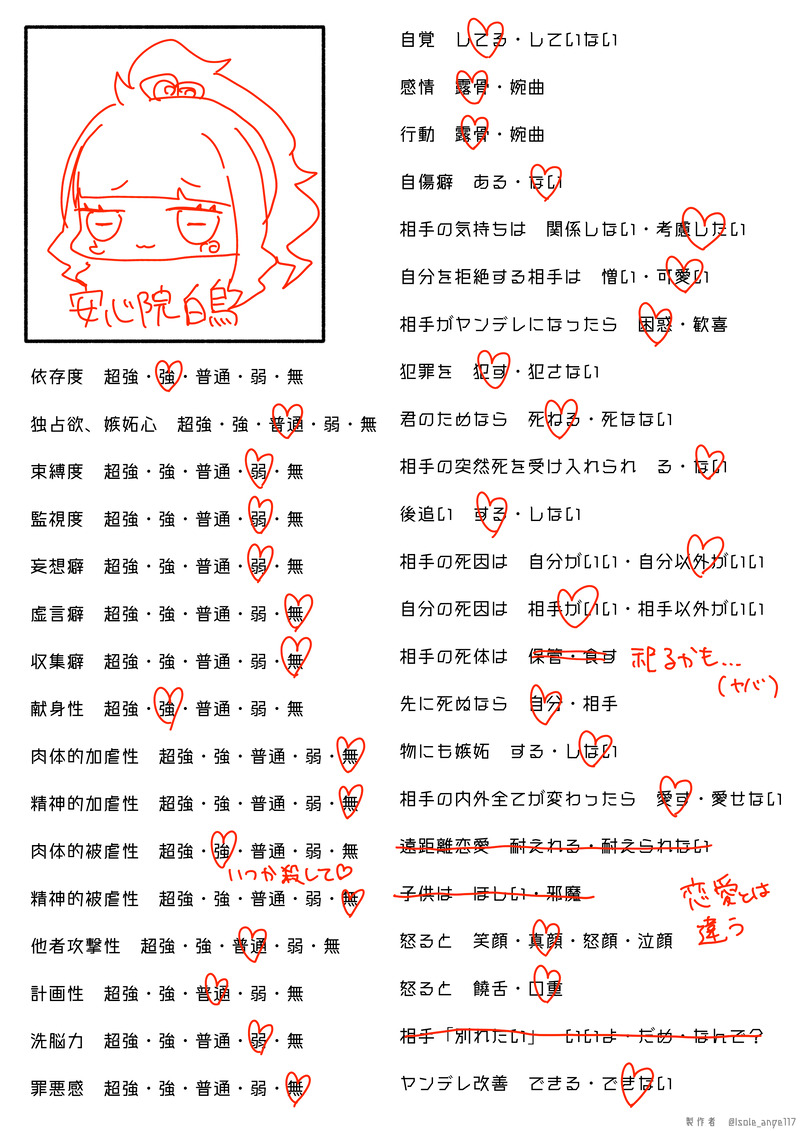 安心院白鳥
依存度 超強・強・普通・弱・無
独占欲、嫉妬心 超強・強・普通・弱・無
束縛度 超強・強・普通・弱・無
監視度 超強・強・普通・弱・無
妄想癖 超強・強・普通・弱・無
虚言癖 超強・強・普通・弱・無
収集癖 超強・強・普通・弱・無
献身性 超強・強・普通・弱・無
肉体的加虐性 超強・強・普通・弱・無
精神的加虐性 超強・強・普通・弱・無
肉体的被虐性 超強・強・普通・弱・無
いつか殺して♡
精神的被虐性 超強・強・普通・弱・無
他者攻撃性 超強・強・普通・弱・無
計画性 超強・強・普通・弱・無
洗脳力 超強・強・普通・弱・無
罪悪感 超強・強・普通・弱・無
自覚 してる・していない
感情 露骨・婉曲
行動 露骨・婉曲
自傷癖 ある・ない
相手の気持ちは 関係しない・考慮したい
自分を拒絶する相手は 憎い・可愛い
相手がヤンデレになったら 困惑・歓喜
犯罪を 犯す・犯さない
君のためなら 死ねる・死なない
相手の突然死を受け入れられ る・ない
後追い する・しない
相手の死因は 自分がいい・自分以外がいい
自分の死因は 相手がいい・相手以外がいい
相手の死体は 保管・食す 祀るかも…
(ヤバ)
先に死ぬなら 自分・相手
物にも嫉妬 する・しない
相手の内外全てが変わったら 愛す・愛せない
遠距離恋愛 耐えれる・耐えられない
子供は ほしい・邪魔
恋愛とは
違う
怒ると 笑顔・真顔・怒顔・泣顔
怒ると 饒舌・口重
相手「別れたい」 いいよ・だめ・なんで？
ヤンデレ改善 できる・できない
製作者 @Isole_ange117